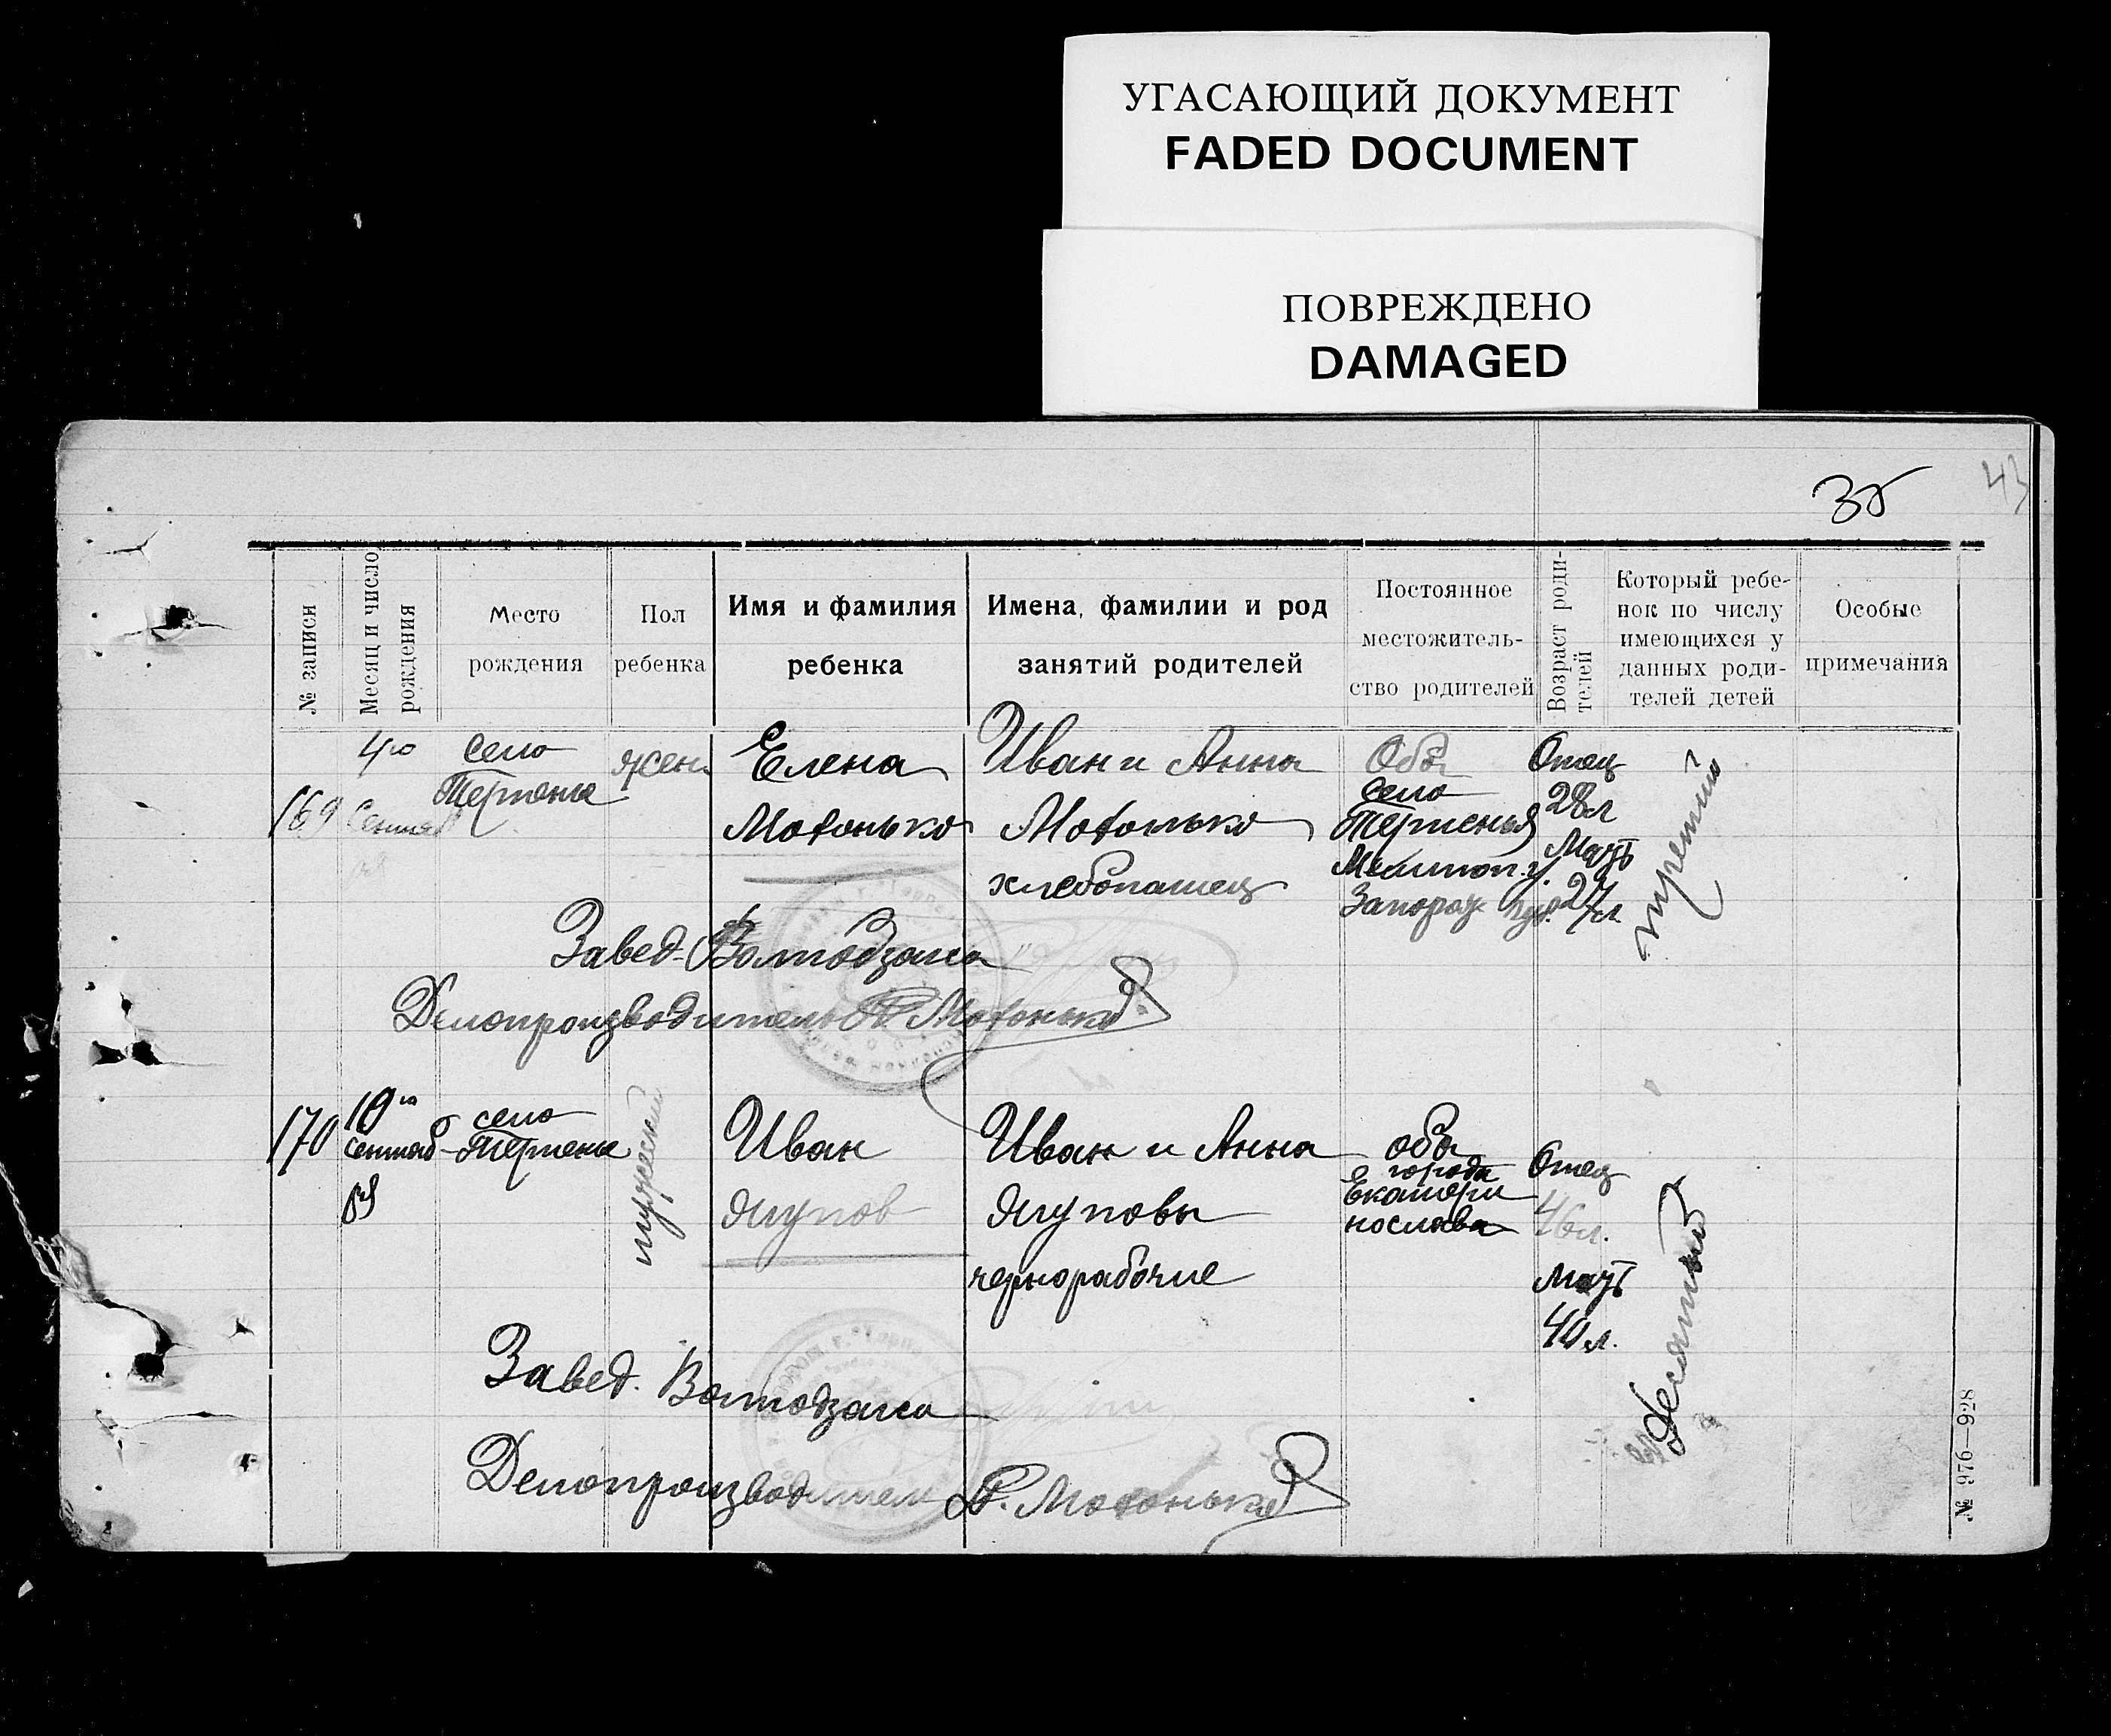 УГАСАЮЩИЙ ДОКУМЕНТ
FADED DOCUMENT
ПОВРЕЖДЕНО
DAMAGED
35
43
№ записи
Месяц и число
рождения
Место
рождения
Пол
ребенка
Имя и фамилия
ребенка
Имена, фамилии и род
занятий родителей
Постоянное
местожитель-
ство родителей
Возраст роди-
телей
Который ребе-
нок по числу
имеющихся у
данных роди-
телей детей
Особые
примечания
169
4го
Сентяб
ря
село
Терпенье
жен.
Елена
Мотонько
Иван и Анна
Мотонько
хлебопашец
Оба
село
Терпенья
Мелитоп. у.
Запорож губ.
Отец
28л
Мать
27л.
третий
Завед. Волподзагса
Делопроизводитель Мотонько
170
10го
сентяб
ря
село
Терпенье
мужеский
Иван
Ягупов
Иван и Анна
Ягуповы
чернорабочие
оба
города
Екатери
нослава
Отец
46л.
мать
40л.
Десятый
Завед. Волподзагса
Делопроизводитель Мотонько
№ 976—928